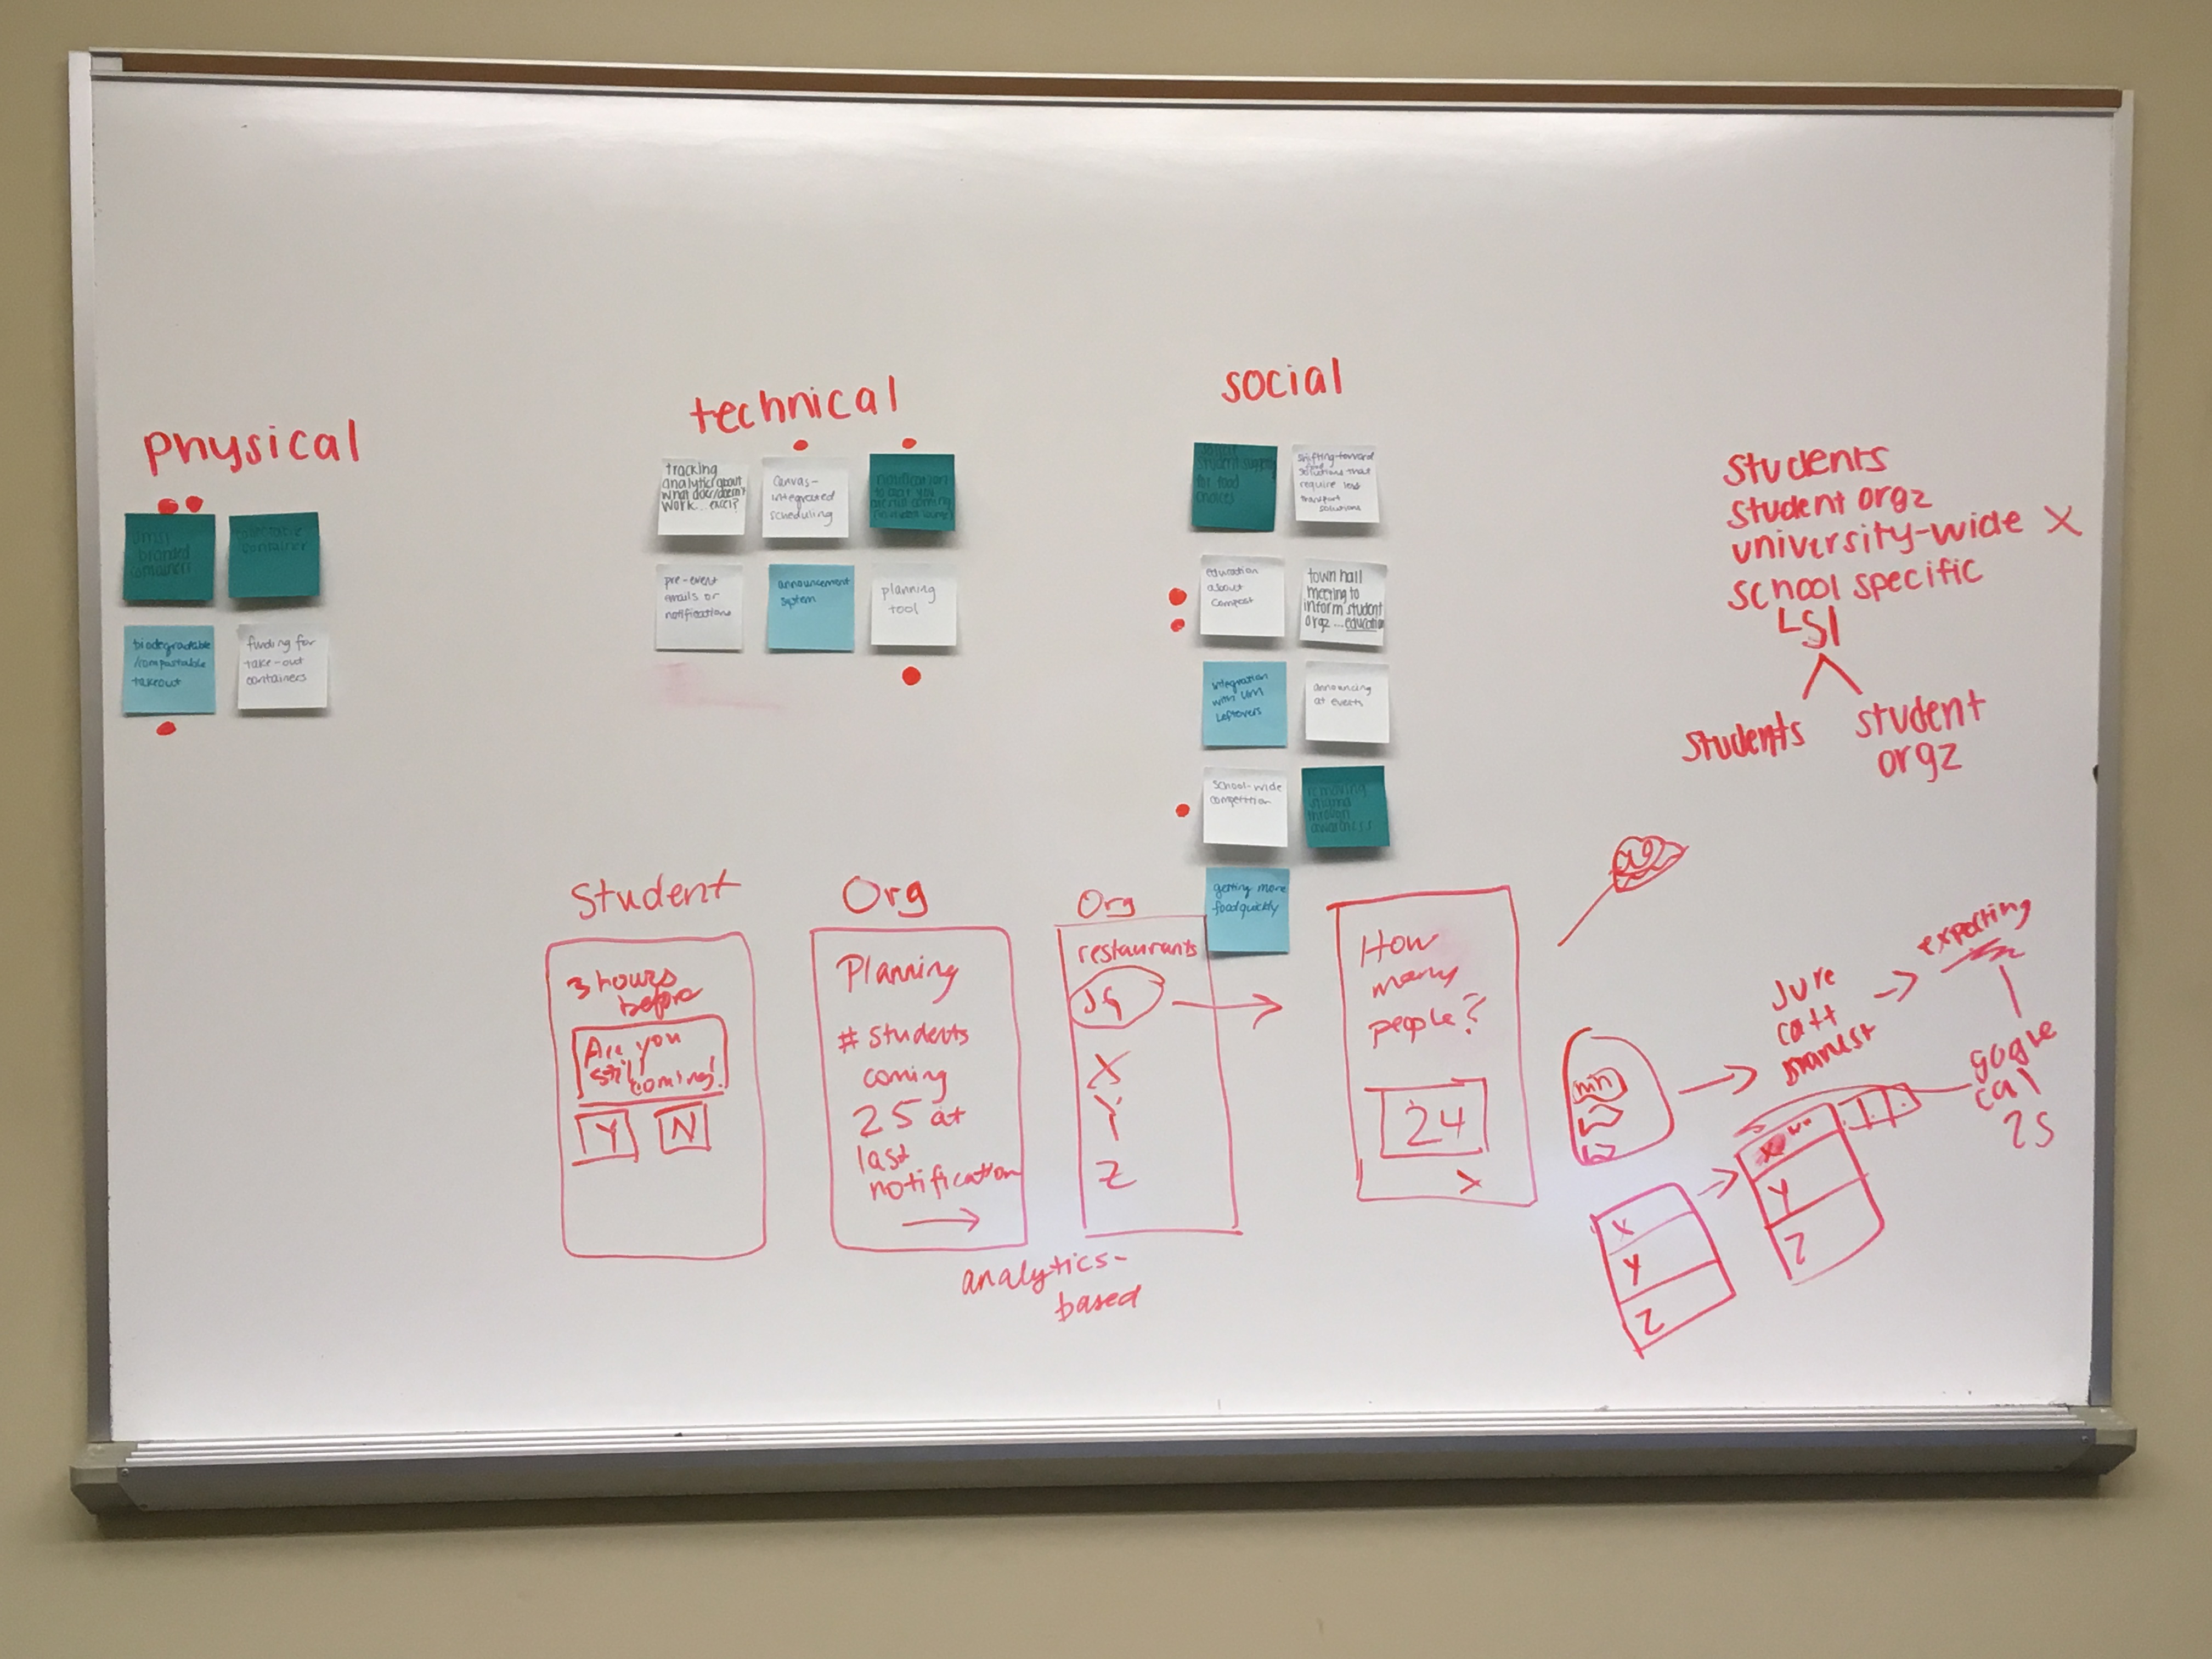 physical
UMSI
branded
containers
collectable
container
biodegradable
/compostable
takeout
funding for
take-out
containers
technical
tracking
analytics about
what does/doesn't
work...excel?
Canvas-
integrated
scheduling
notification
pre-event
emails or
notifications
announcement
system
planning
tool
social
student
for food
choices
shifting toward
solutions that
require less
transport
solutions
education
about
compost
town hall
meeting to
inform student
orgz...education
integration
with UM
Leftovers
announcing
at events
school-wide
competition
removing
stigma
through
awareness
getting more
food quickly
students
student orgz
university-wide X
school specific
students
student
orgz
Student
3 hours
before
Are you
still
coming?
Y N
Org
Planning
# students
coming
25 at
last
notification
analytics-
based
Org
restaurants
JG
X
Y
Z
How
many
people?
24
>
expecting
google
cal
25
X
Y
Z
Y
Z